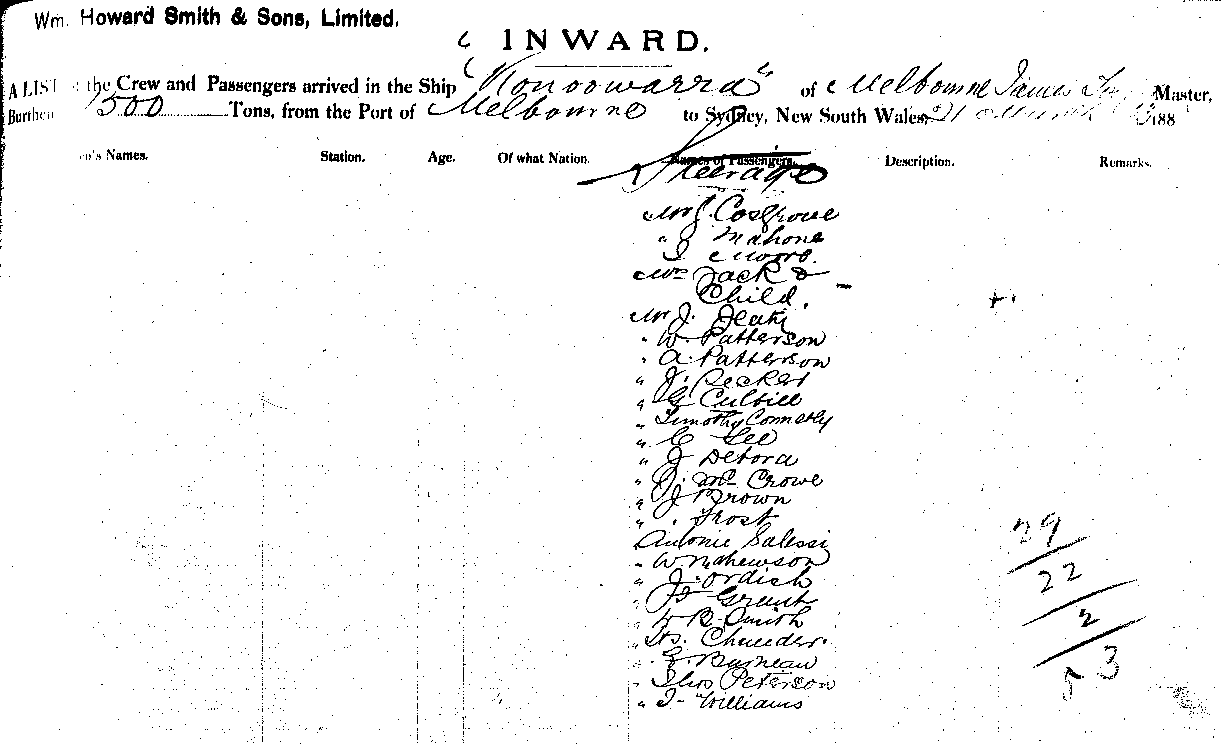 Wm. Howard Smith & Sons, Limited.
INWARD.
A LIST the Crew and Passengers arrived in the Ship "Konoowarra" of Melbourne James Master,
Burthen 1500 Tons, from the Port of Melbourne to Sydney, New South Wales, 21 March 188
Names. Station. Age. Of what Nation. Names of Passengers. Description. Remarks.
Steerage
Mr J. Cosgrove
" J Mahone
J Moore.
Mrs Jack &
Child.
Mr J.
" W. Patterson
" A. Patterson
" J.
" G
" Timothy Connelly
" C Lee
" J Debora
" J. Mc Crowe
" J Brown
" . Frost
Antonie Salessi
" W Mathewson
" J. Ordish
" Grant
" B. Smith
"
"
" Peterson
" J- Williams
29
22
2
53